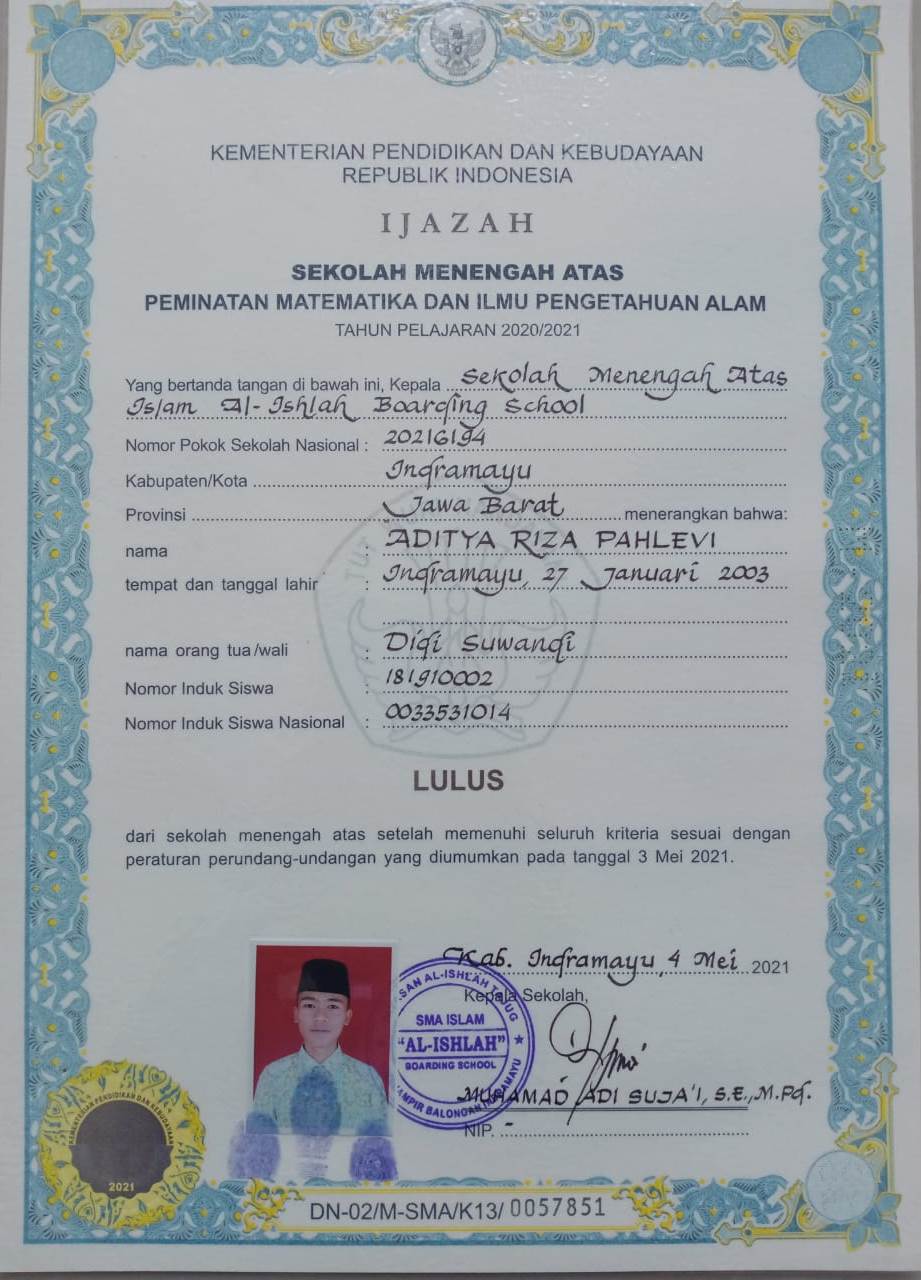 KEMENTERIAN PENDIDIKAN DAN KEBUDAYAAN
REPUBLIK INDONESIA
IJAZAH
SEKOLAH MENENGAH ATAS
PEMINATAN MATEMATIKA DAN ILMU PENGETAHUAN ALAM
TAHUN PELAJARAN 2020/2021
Yang bertanda tangan di bawah ini, Kepala Sekolah Menengah Atas
Islam Al-Ishlah Boarding School
Nomor Pokok Sekolah Nasional : 20216194
Kabupaten/Kota Indramayu
Provinsi Jawa Barat menerangkan bahwa:
nama : ADITYA RIZA PAHLEVI
tempat dan tanggal lahir : Indramayu, 27 Januari 2003
nama orang tua/wali : Didi Suwandi
Nomor Induk Siswa : 181910002
Nomor Induk Siswa Nasional : 0033531014
LULUS
dari sekolah menengah atas setelah memenuhi seluruh kriteria sesuai dengan
peraturan perundang-undangan yang diumumkan pada tanggal 3 Mei 2021.
Kab. Indramayu, 4 Mei 2021
Kepala Sekolah,
AL-ISHLAH
SMA ISLAM
"AL-ISHLAH"
BOARDING SCHOOL
BALONGAN INDRAMAYU
MUHAMAD ADI SUJA'I, S.E., M.Pd.
NIP. -
KEMENTERIAN PENDIDIKAN DAN KEBUDAYAAN
2021
DN-02/M-SMA/K13/ 0057851